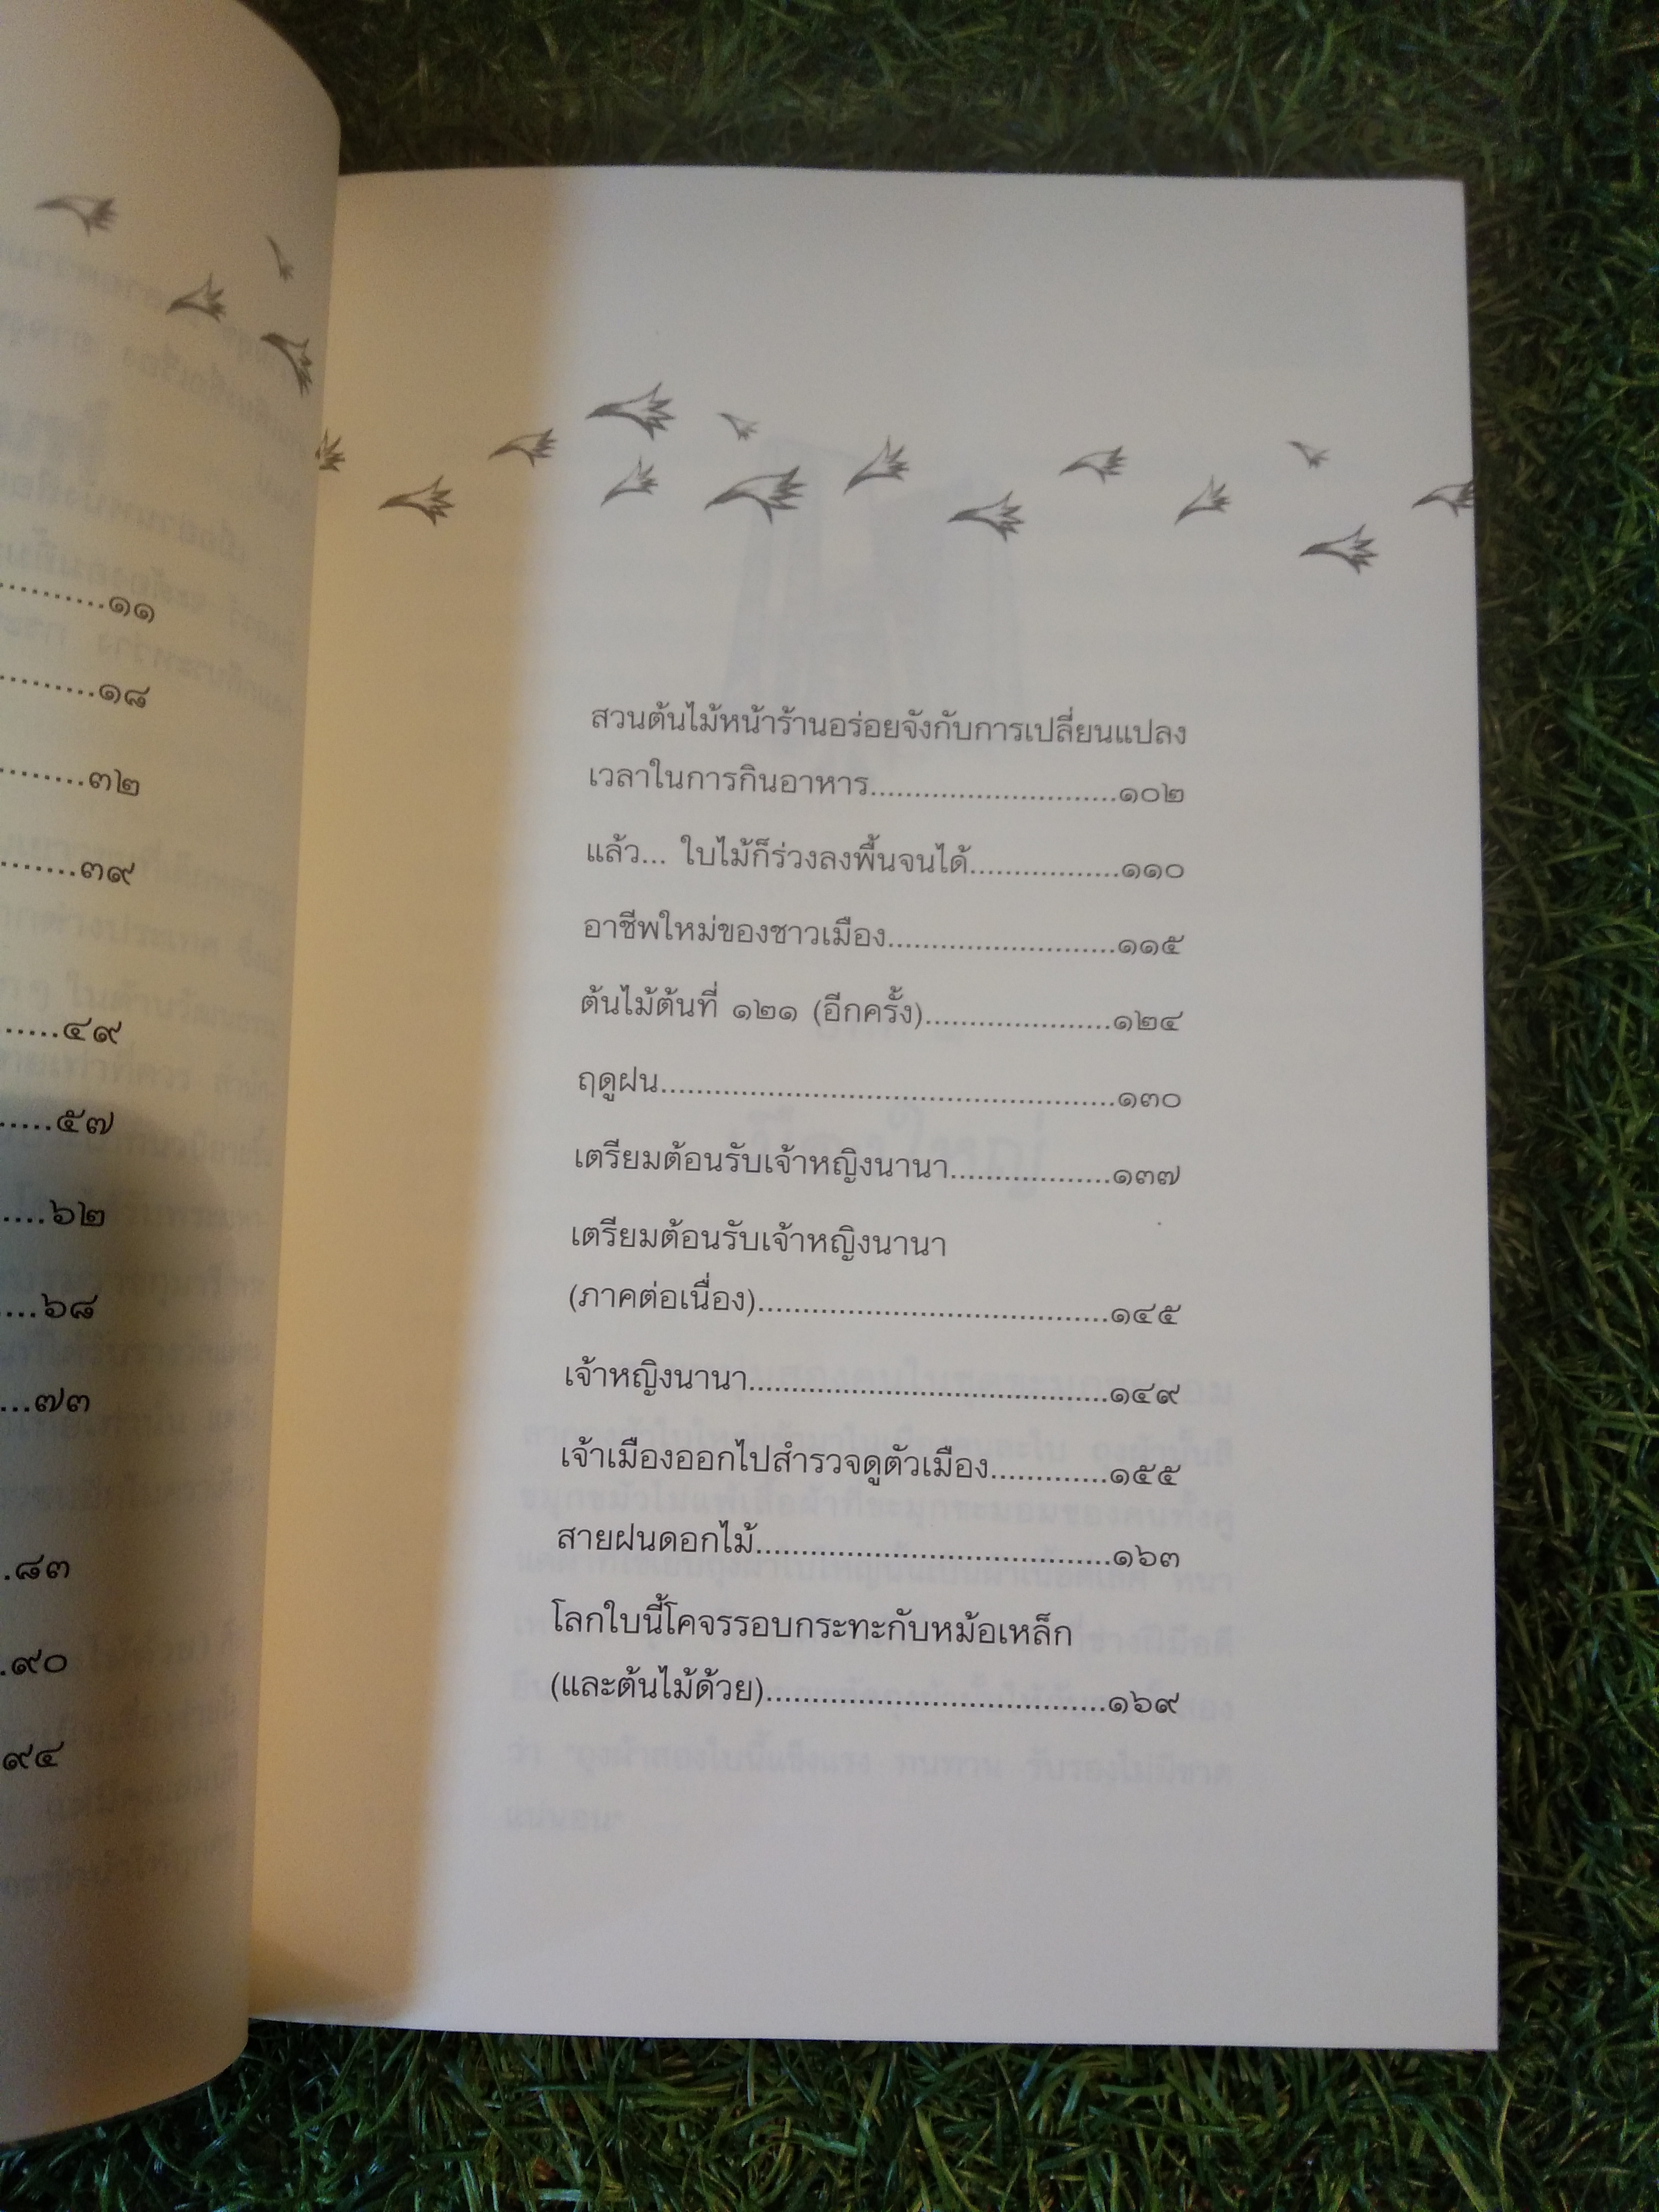 ...........๑๑
..........๑๘
........๓๒
.......๓๙
......๔๙
.....๕๗
....๖๒
....๖๘
...๗๓
.๘๓
.๙๐
๙๔
สวนต้นไม้หน้าร้านอร่อยจังกับการเปลี่ยนแปลง
เวลาในการกินอาหาร............................๑๐๒
แล้ว... ใบไม้ก็ร่วงลงพื้นจนได้.................๑๑๐
อาชีพใหม่ของชาวเมือง..........................๑๑๕
ต้นไม้ต้นที่ ๑๒๑ (อีกครั้ง).....................๑๒๔
ฤดูฝน....................................................๑๓๐
เตรียมต้อนรับเจ้าหญิงนานา..................๑๓๗
เตรียมต้อนรับเจ้าหญิงนานา
(ภาคต่อเนื่อง)........................................๑๔๕
เจ้าหญิงนานา.........................................๑๔๙
เจ้าเมืองออกไปสำรวจดูตัวเมือง.............๑๕๕
สายฝนดอกไม้........................................๑๖๓
โลกใบนี้โคจรรอบกระทะกับหม้อเหล็ก
(และต้นไม้ด้วย)......................................๑๖๙